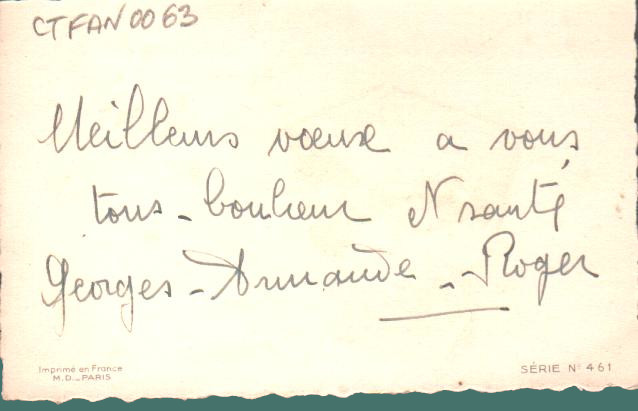 CTFAN0063
Meilleurs vœux a vous
tous - bonheur et santé
Georges - Armande - Roger
Imprimé en France
M.D. - PARIS
SÉRIE N° 461